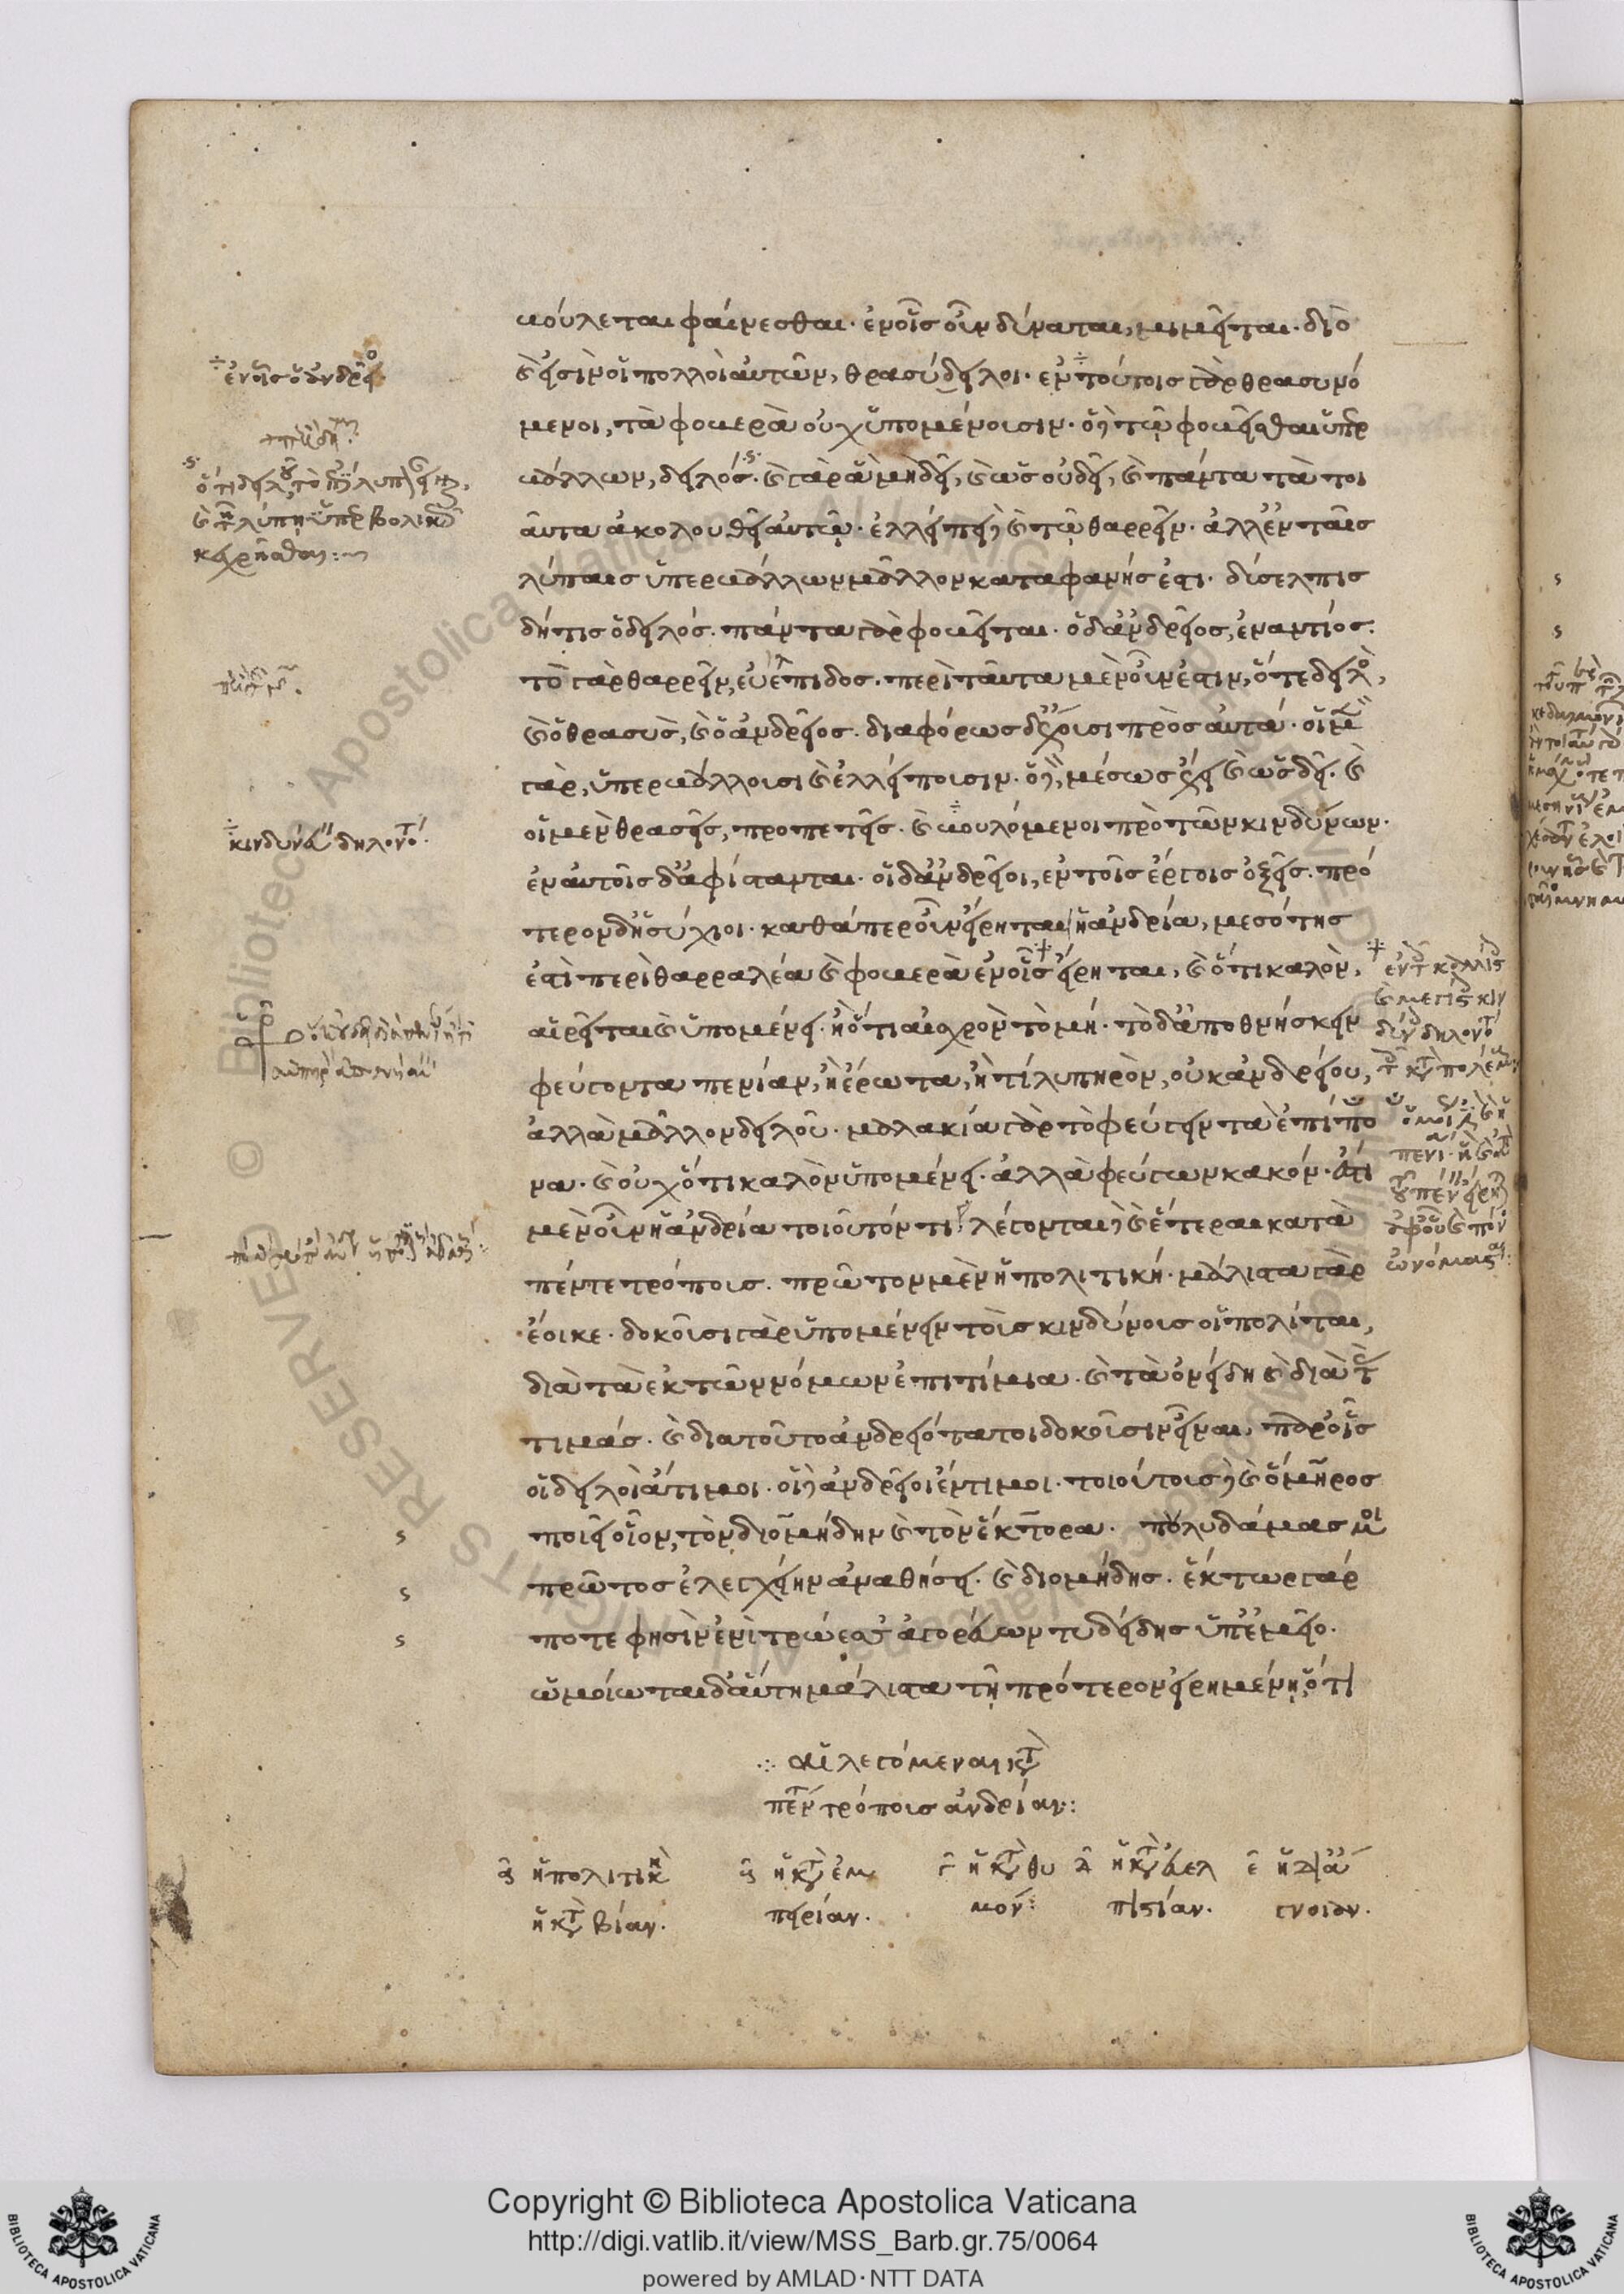 βούλεται φαίνεσθαι· ἐν οἷς οὖν δύναται, μιμεῖται· διὸ
καὶ εἰσὶν οἱ πολλοὶ αὐτῶν, θρασύδειλοι· ἐν τούτοις γὰρ θρασυνό
μενοι, τὰ φοβερὰ οὐχ ὑπομένουσιν· ὁ δὲ τῷ φοβεῖσθαι ὑπερ
βάλλων, δειλός· καὶ γὰρ ἃ μὴ δεῖ, καὶ ὡς οὐ δεῖ, καὶ πάντα τὰ τοι
αῦτα ἀκολουθεῖ αὐτῷ· ἐλλείπει δὲ καὶ τῷ θαρρεῖν· ἀλλ' ἐν ταῖς
λύπαις ὑπερβάλλων μᾶλλον καταφανής ἐστι· δύσελπις
δή τις ὁ δειλός· πάντα γὰρ φοβεῖται· ὁ δ' ἀνδρεῖος, ἐναντίος·
τὸ γὰρ θαρρεῖν, εὐέλπιδος· περὶ ταῦτα μὲν οὖν ἐστιν, ὅ τε δειλὸς,
καὶ ὁ θρασὺς, καὶ ὁ ἀνδρεῖος· διαφόρως δ' ἔχουσι πρὸς αὐτά· οἱ μὲν
γὰρ, ὑπερβάλλουσι καὶ ἐλλείπουσιν· ὁ δὲ, μέσως ἔχει καὶ ὡς δεῖ· καὶ
οἱ μὲν θρασεῖς, προπετεῖς· καὶ βουλόμενοι πρὸ τῶν κινδύνων·
ἐν αὐτοῖς δ' ἀφίστανται· οἱ δ' ἀνδρεῖοι, ἐν τοῖς ἔργοις ὀξεῖς· πρό
τερον δ' ἡσύχιοι· καθάπερ οὖν εἴρηται ἡ ἀνδρία, μεσότης
ἐστὶ περὶ θαρραλέα καὶ φοβερὰ ἐν οἷς εἴρηται, καὶ ὅτι καλὸν,
αἱρεῖται καὶ ὑπομένει· ἢ ὅτι αἰσχρὸν τὸ μή· τὸ δ' ἀποθνήσκειν
φεύγοντα πενίαν, ἢ ἔρωτα, ἤ τι λυπηρὸν, οὐκ ἀνδρείου,
ἀλλὰ μᾶλλον δειλοῦ· μαλακία γὰρ τὸ φεύγειν τὰ ἐπίπο
να· καὶ οὐχ ὅτι καλὸν ὑπομένει· ἀλλὰ φεύγων κακόν· ἔστι
μὲν οὖν ἡ ἀνδρία τοιοῦτόν τι· λέγονται δὲ καὶ ἕτεραι κατὰ
πέντε τρόπους· πρῶτον μὲν ἡ πολιτική· μάλιστα γὰρ
ἔοικε· δοκοῦσι γὰρ ὑπομένειν τοὺς κινδύνους οἱ πολῖται,
διὰ τὰ ἐκ τῶν νόμων ἐπιτίμια· καὶ τὰ ὀνείδη καὶ διὰ τὰς
τιμάς· καὶ διὰ τοῦτο ἀνδρειότατοι δοκοῦσιν εἶναι, παρ' οἷς
οἱ δειλοὶ ἄτιμοι· οἱ δὲ ἀνδρεῖοι ἔντιμοι· τοιούτους δὲ καὶ ὅμηρος
ποιεῖ οἷον, τὸν διομήδην καὶ τὸν ἕκτορα· πουλυδάμας μοι
πρῶτος ἐλεγχείην ἀναθήσει· καὶ διομήδης· ἕκτωρ γάρ
ποτε φησὶν ἐνὶ τρώεσσ' ἀγοράων τυδείδης ὑπ' ἐμεῖο·
ὡμοίωται δ' αὕτη μάλιστα τῇ πρότερον εἰρημένῃ, ὅτι
αἱ λεγόμεναι κατὰ
πέντε τρόπους ἀνδρίαι:
α ἡ πολιτικὴ
ἢ κατὰ βίαν.
β ἡ κατὰ ἐμ
πειρίαν.
γ ἡ κατὰ θυ
μόν:
δ ἡ κατὰ εὐελ
πιστίαν.
ε ἡ δι' ἄ
γνοιαν.
κινδύνους δηλονότι
Copyright © Biblioteca Apostolica Vaticana
http://digi.vatlib.it/view/MSS_Barb.gr.75/0064
powered by AMLAD·NTT DATA
BIBLIOTECA APOSTOLICA VATICANA
BIBLIOTECA APOSTOLICA VATICANA